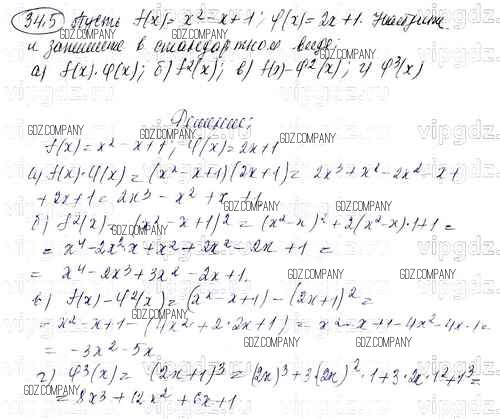 34.5 Пусть f(x) = x² - x + 1; φ(x) = 2x + 1. Найдите
и запишите в стандартном виде:
а) f(x)·φ(x); б) f²(x); в) f(x) - φ²(x); г) φ³(x)
Решение:
f(x) = x² - x + 1; φ(x) = 2x + 1
а) f(x)·φ(x) = (x² - x + 1)(2x + 1) = 2x³ + x² - 2x² - x +
+ 2x + 1 = 2x³ - x² + x + 1.
б) f²(x) = (x² - x + 1)² = (x² - x)² + 2(x² - x)·1 + 1 =
= x⁴ - 2x²·x + x² + 2x² - 2x + 1 =
= x⁴ - 2x³ + 3x² - 2x + 1.
в) f(x) - φ²(x) = (x² - x + 1) - (2x + 1)² =
= x² - x + 1 - (4x² + 2·2x + 1) = x² - x + 1 - 4x² - 4x - 1 =
= -3x² - 5x
г) φ³(x) = (2x + 1)³ = (2x)³ + 3(2x)²·1 + 3·2x·1² + 1³ =
= 8x³ + 12x² + 6x + 1.